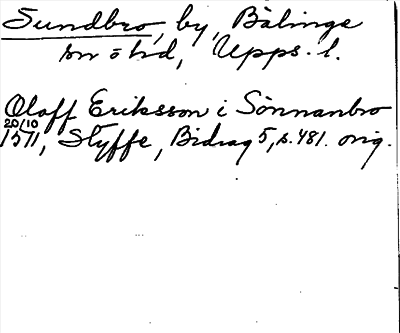 Sundbro, by, Bälinge
sn o hd, Upps. l.
Oloff Eriksson i Sönnanbro
20/10
1571, Styffe, Bidrag 5, s. 481. orig.